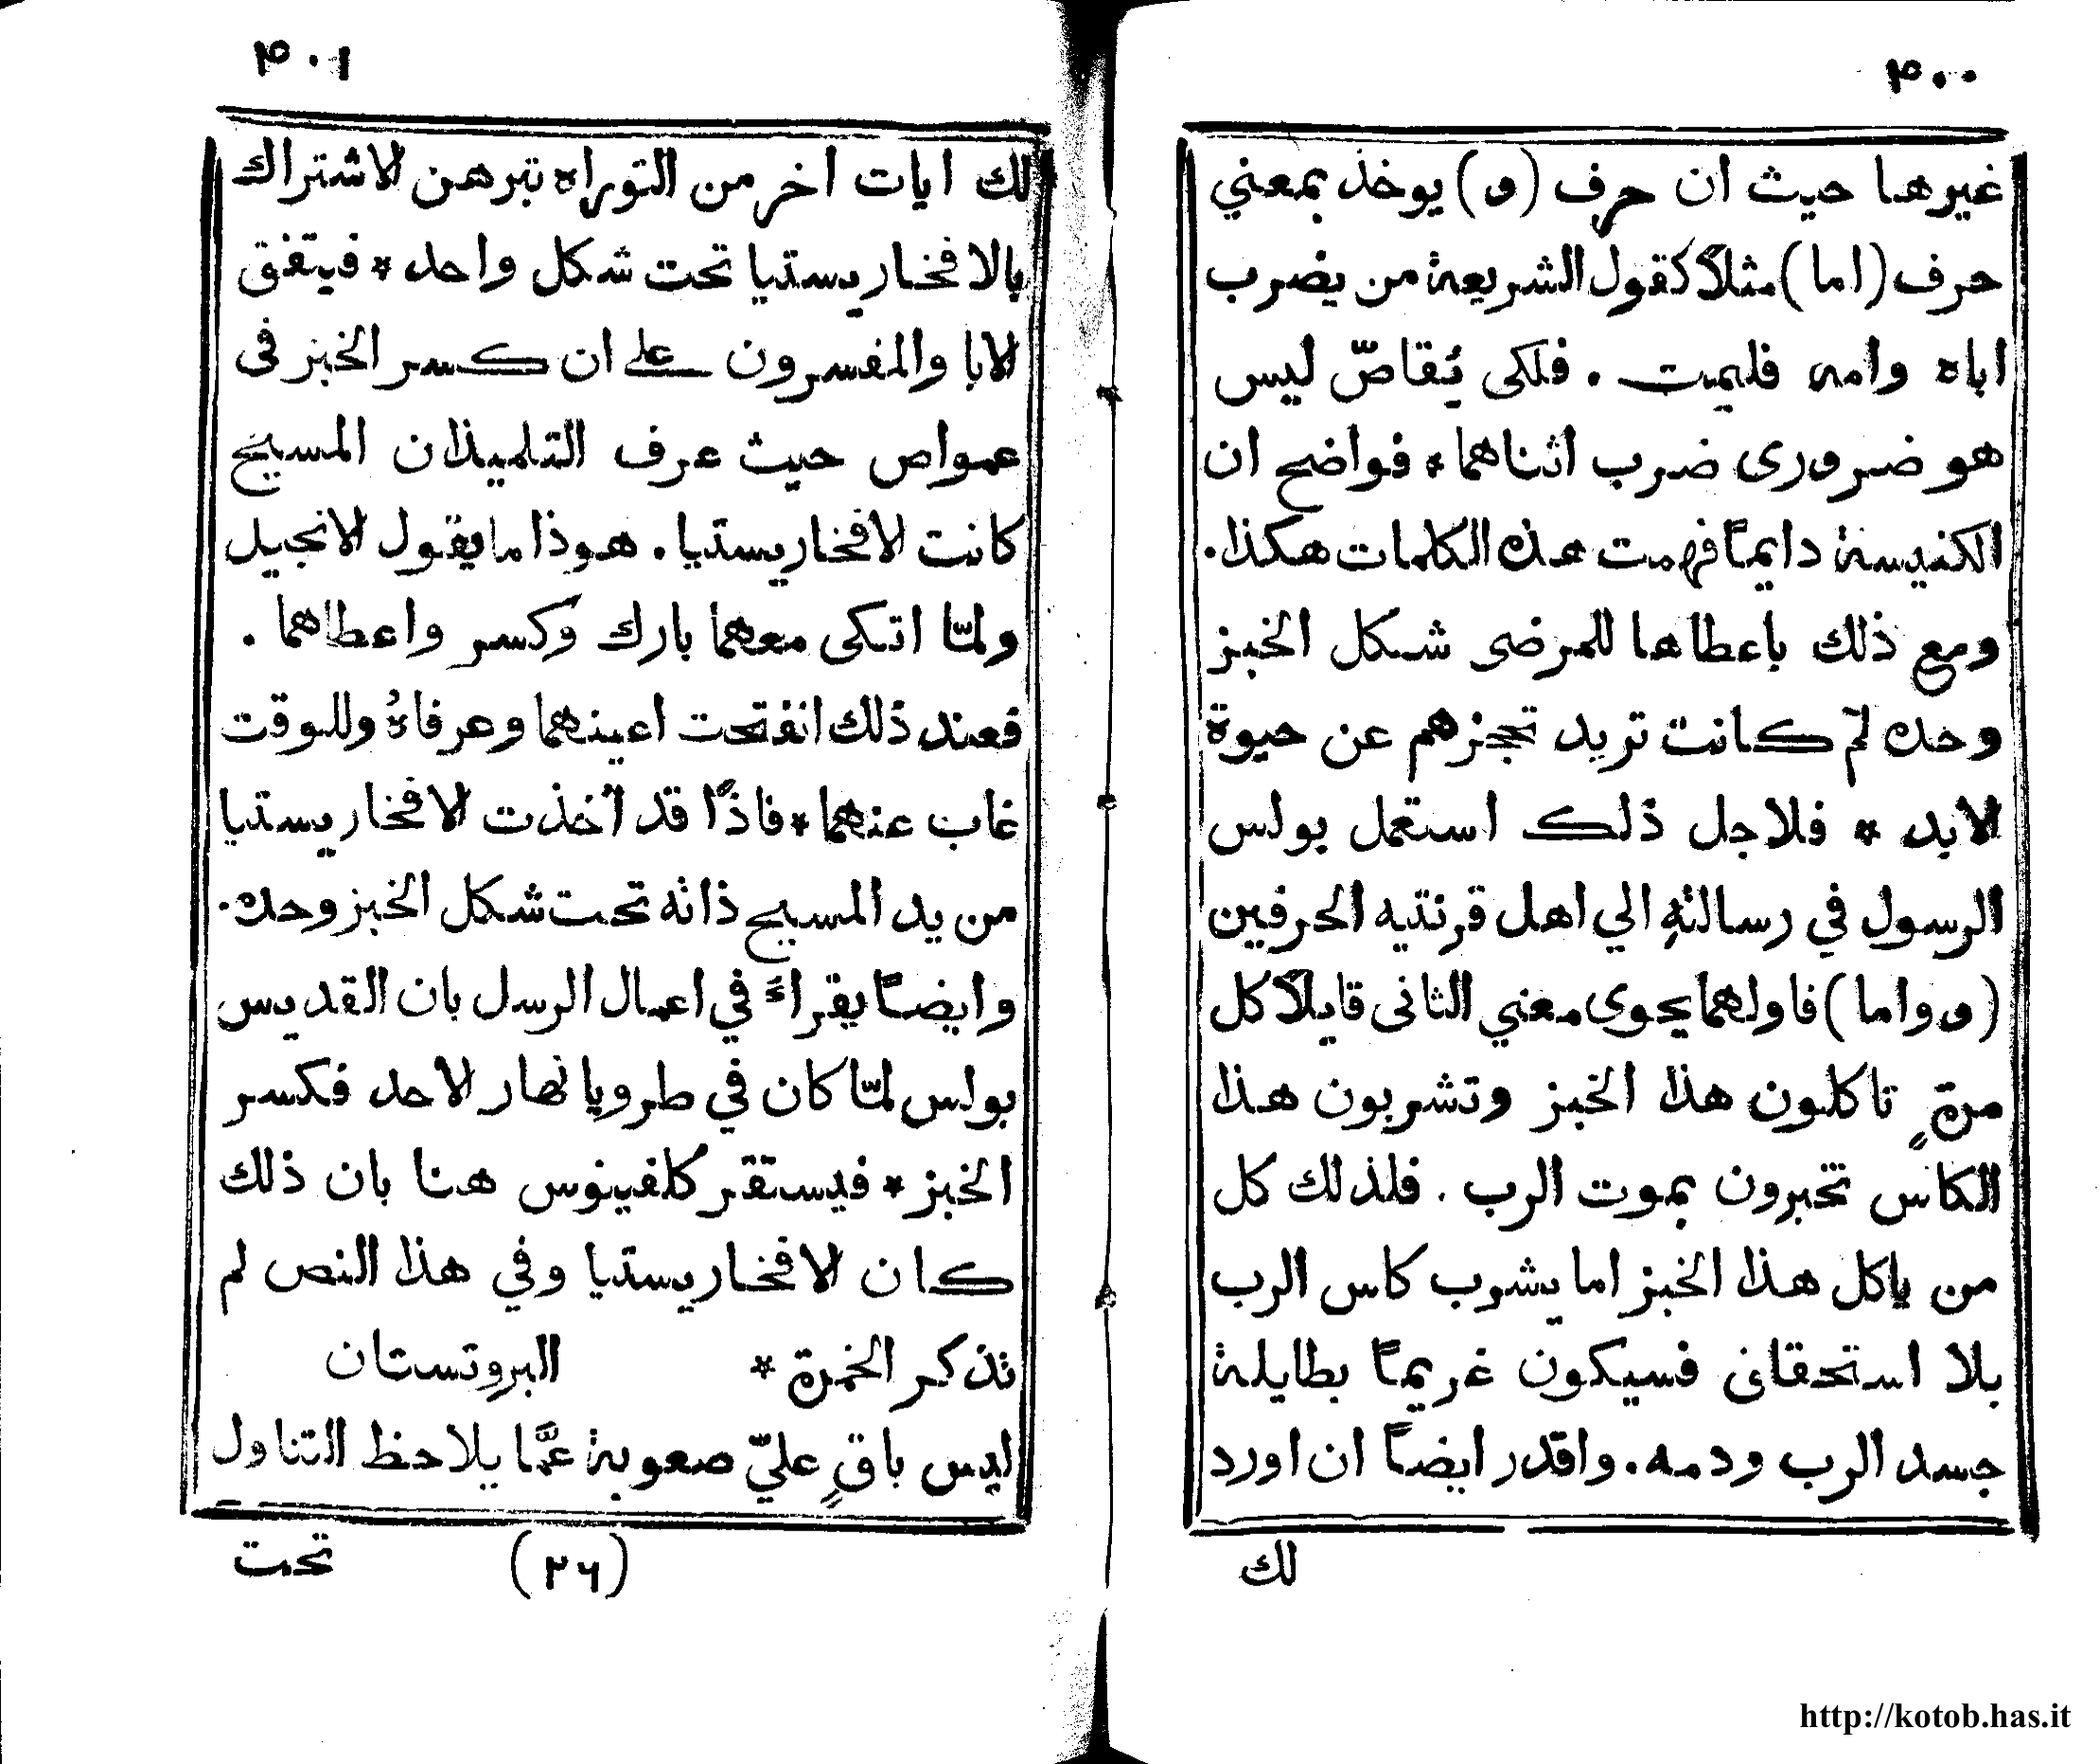 ٤٠٠
غيرها حيث ان حرف (و) يوخذ بمعني
حرف (اما) مثلاً كقول الشريعة من يضرب
اباه وامه فليميت . فلكى يُقاصّ ليس
هو ضرورى ضرب اثناهما * فواضح ان
الكنيسة دايمًا فهمت هذه الكلمات هكذا.
ومع ذلك باعطاها للمرضى شكل الخبز
وحده لم كانت تريد تحجزهم عن حيوة
الابد * فلاجل ذلك استعمل بولس
الرسول في رسالتهِ الي اهل قرنتيه الحرفين
(و واما) فاولهما يحوى معني الثانى قايلاً كل
مرةٍ تاكلون هذا الخبز وتشربون هذا
الكاس تخبرون بموت الرب . فلذلك كل
من ياكل هذا الخبز اما يشرب كاس الرب
بلا استحقاق فسيكون غريمًا بطايلة
جسد الرب ودمه. واقدر ايضًا ان اورد
لك
٤٠١
لك ايات اخر من التوراه تبرهن الاشتراك
بالافخاريستيا تحت شكل واحد * فيتفق
الابا والمفسرون على ان كسر الخبز فى
عمواص حيث عرف التلميذان المسيح
كانت الافخاريستيا. هوذا ما يقول الانجيل
ولمّا اتكى معهما بارك وكسر واعطاهما .
فعند ذلك انفتحت اعينهما وعرفاهُ وللوقت
غاب عنهما * فاذًا قد أخذت الافخاريستيا
من يد المسيح ذاته تحت شكل الخبز وحده.
وايضًا يقراءَ في اعمال الرسل بان القديس
بولس لمّا كان في طرويا نهار الاحد فكسر
الخبز * فيستقر كلفينوس هنا بان ذلك
كان الافخاريستيا وفي هذا النص لم
تذكر الخمرة * البروتستان
ليس باقٍ عليّ صعوبة عمَّا يلاحظ التناول
(٢٦)
تحت
http://kotob.has.it